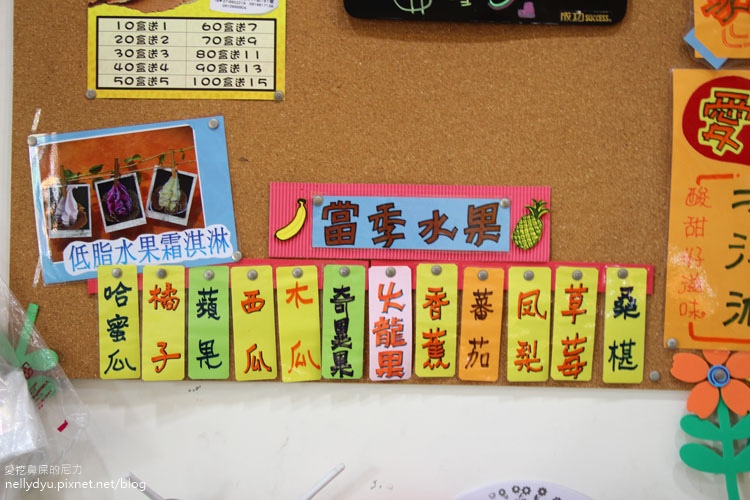 10盒送1 60盒送7
20盒送2 70盒送9
30盒送3 80盒送11
40盒送4 90盒送13
50盒送5 100盒送15
成功 success.
低脂水果霜淇淋
當季水果
哈蜜瓜
橘子
蘋果
西瓜
木瓜
奇異果
火龍果
香蕉
蕃茄
凤梨
草莓
桑椹
愛
酸甜好滋味
愛挖鼻屎的尼力
nellydyu.pixnet.net/blog